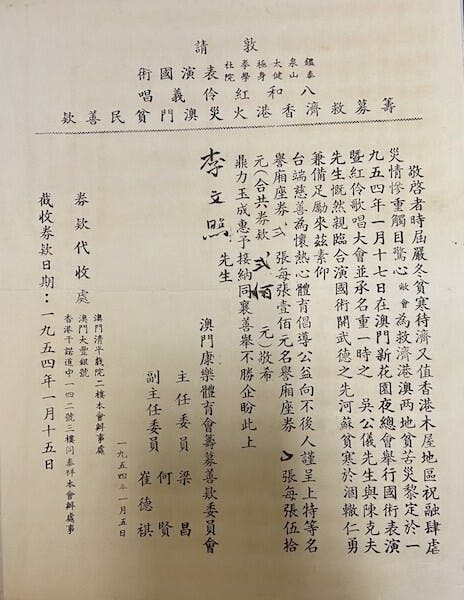 敦請
鑑泉太極拳社
泰山健身學院
表演國術
八和紅伶義唱
籌募救濟香港火災澳門貧民善欵
敬啓者時屆嚴冬貧寒待濟又值香港木屋地區祝融肆虐
災情慘重觸目驚心敝會為救濟港澳兩地貧苦災黎定於一
九五四年一月十七日在澳門新花園夜總會舉行國術表演
暨紅伶歌唱大會並承名重一時之 吳公儀先生與陳克夫
先生慨然親臨合演國術開武德之先河蘇貧寒於涸轍仁勇
兼備足勵來茲素仰
台端慈善為懷熱心體育倡導公益向不後人謹呈上特等名
譽廂座券弍張每張壹佰元名譽廂座券 張每張伍拾
元(合共券欵弍百元)敬希
鼎力玉成惠予接納同襄善舉不勝企盼此上
李文照 先生
澳門康樂體育會籌募善欵委員會
主任委員 梁昌
副主任委員 何賢
崔德祺
一九五四年一月五日
券欵代收處
澳門清平戲院二樓本會辦事處
澳門大豐銀號
香港干諾道中一四二號三樓同泰祥本會辦處事
截收券欵日期：一九五四年一月十五日